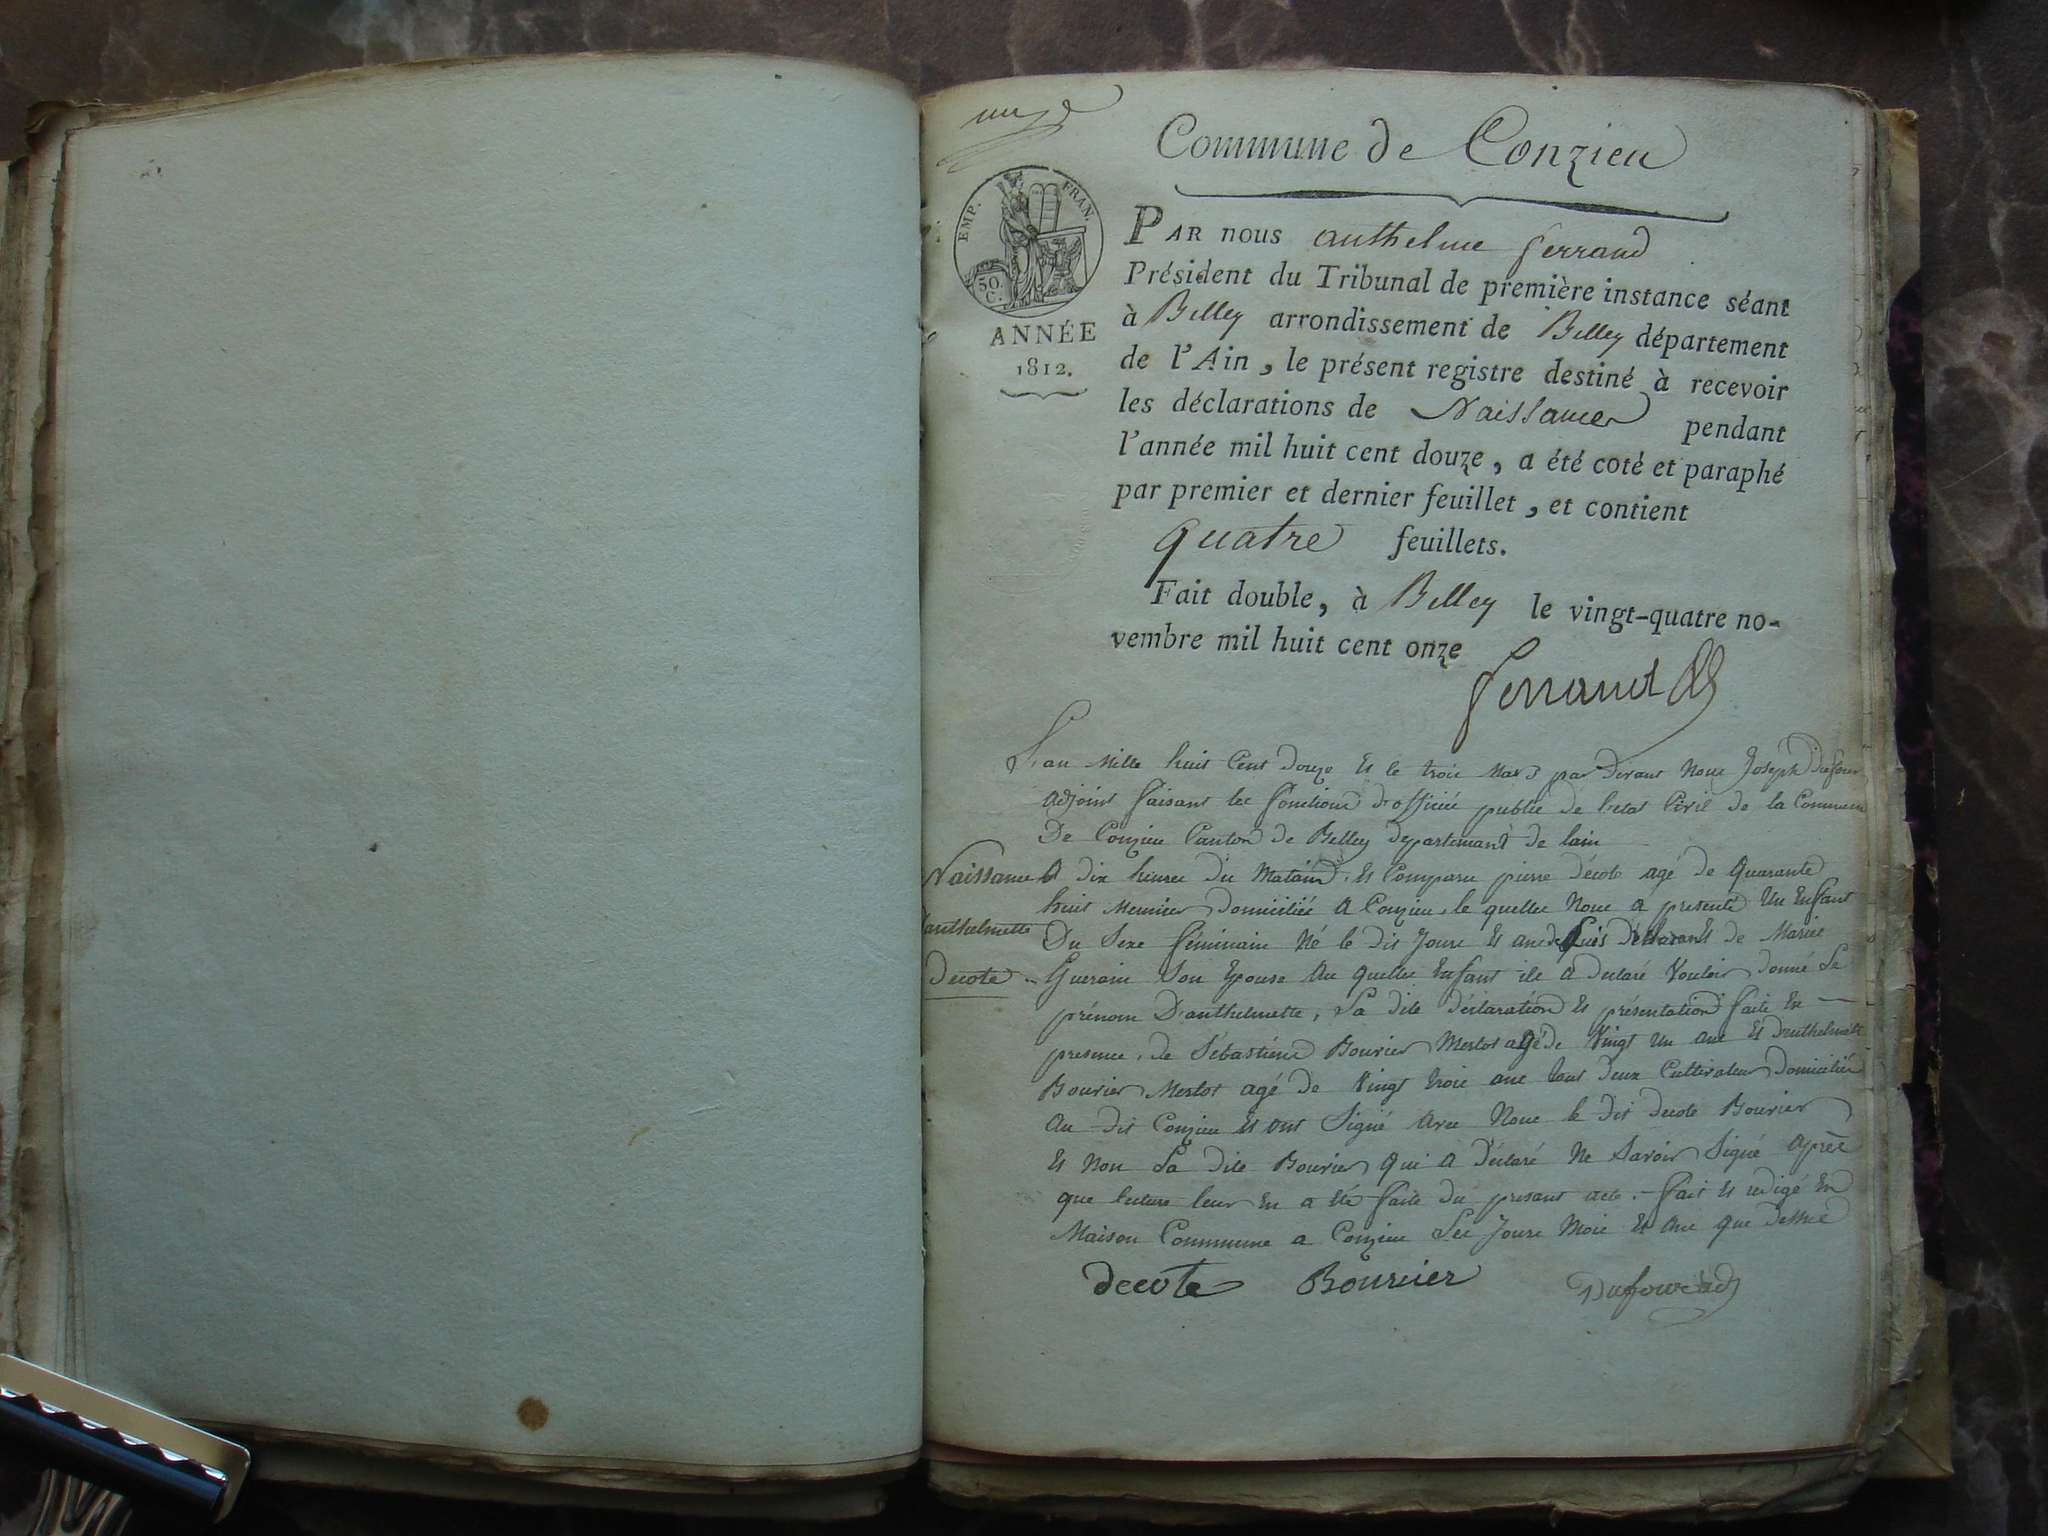 Commune de Conzieu
EMP. FRAN.
50.
C.
ANNÉE
1812.
PAR nous Anthelme ferrand
Président du Tribunal de première instance séant
à Belley arrondissement de Belley département
de l'Ain, le présent registre destiné à recevoir
les déclarations de Naissances pendant
l'année mil huit cent douze, a été coté et paraphé
par premier et dernier feuillet, et contient
quatre feuillets.
Fait double, à Belley le vingt-quatre no-
vembre mil huit cent onze
ferrand
L'an Mille huit Cent Douze Et le trois Mars par Devant Nous Joseph Dufour
adjoint faisant les fonctions d'officié public de letat Civil de la Commune
De Conzieu Canton de Belley departemant de lain
Naissance
A dix heures du Matain Et Comparu pierre décote agé de Quarante
huit Meunier Domicilié A Conzieu, le quelle Nous a presenté Un Enfant
anthelmette
Du Sexe féminain Né le dit Jours Et ande Luis Déclarant Et de Mariee
Decote
Guerain Son Epouse Au quelle Enfant ile A Declaré Vouloir donné le
prénom D'anthelmette, La dite déclaration Et présentation faite En
presence de Sébastiene Bourier Merlot agé de Vingt Un ans Et D'anthelmette
Bourier Merlot agé de Vingt trois ans tout deux Cultivateur domicilié
Au dit Conzieu Et ont Signé Avec Nous le dit decote Bourier
Et Non La dite Bourier Qui A Déclaré Ne Savoir Signé Après
que lecture leur En a Eté faite du presant acte. fait Et redigé En
Maison Commune a Conzieu Les Jours Mois Et Ans Que Dessus
decote Bourier Dufour adj